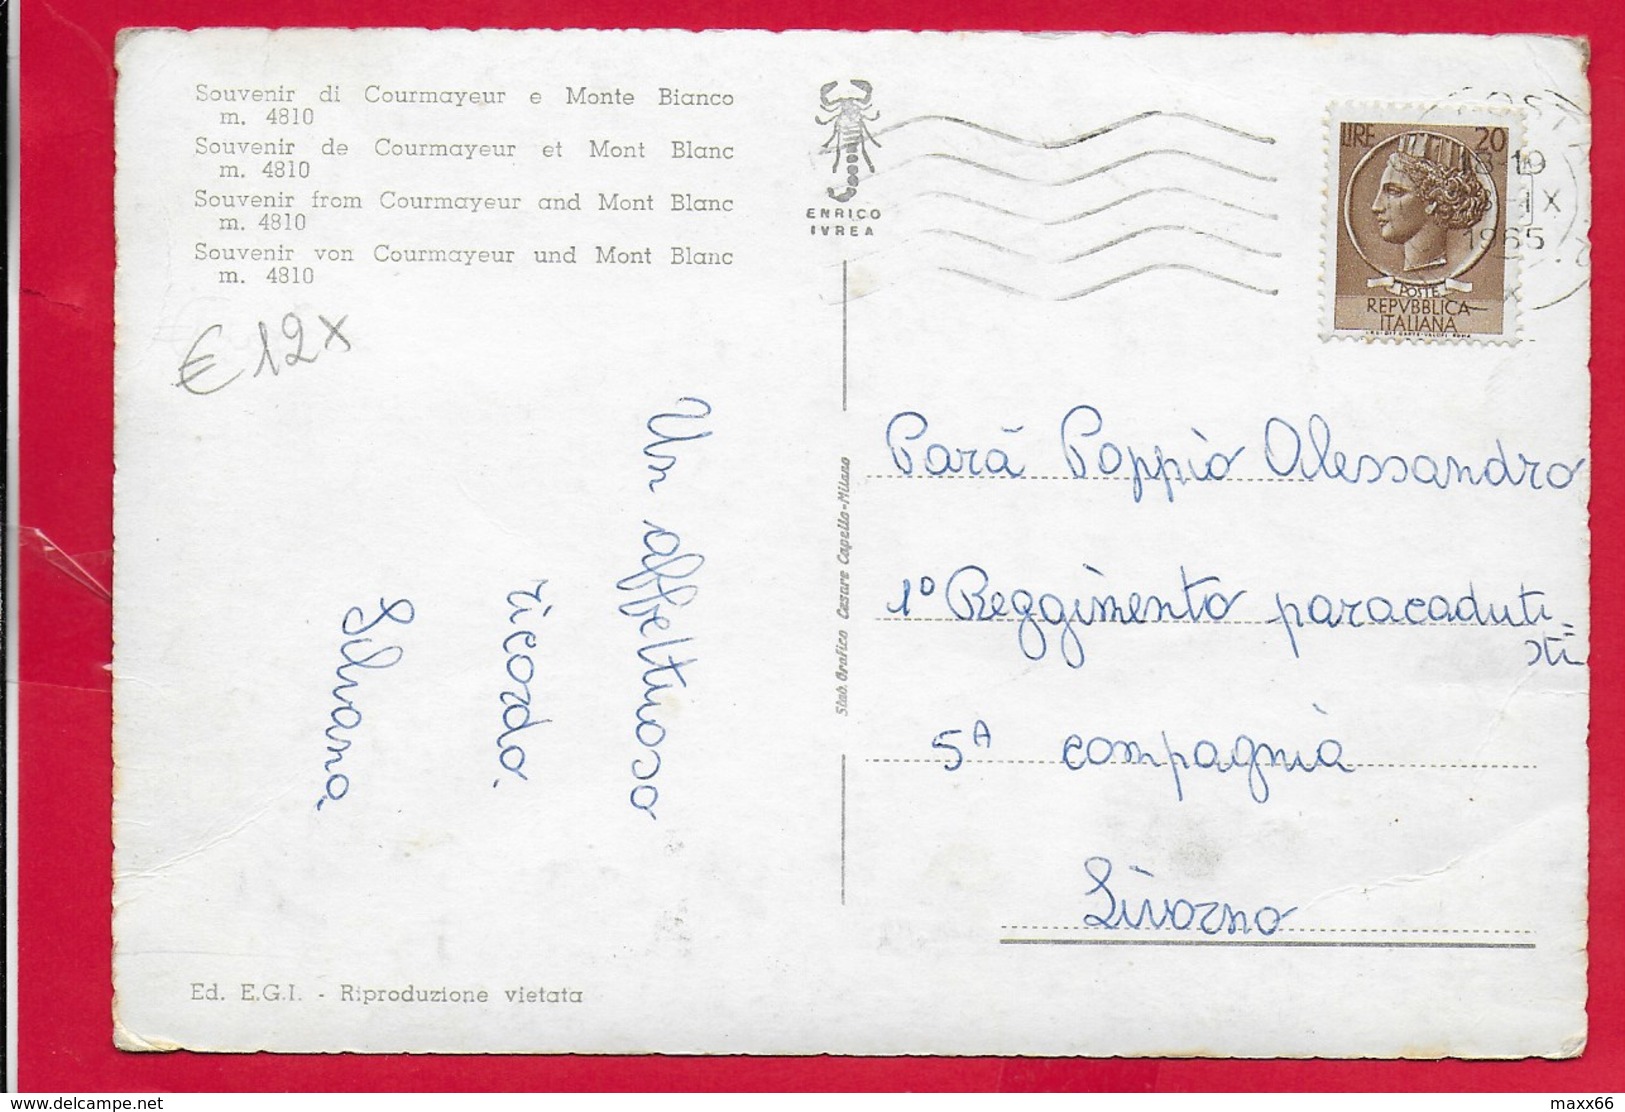 Souvenir di Courmayeur e Monte Bianco
m. 4810
Souvenir de Courmayeur et Mont Blanc
m. 4810
Souvenir from Courmayeur and Mont Blanc
m. 4810
Souvenir von Courmayeur und Mont Blanc
m. 4810
€ 12x
Un affettuoso
ricordo.
Silvana
Ed. E.G.I. - Riproduzione vietata
ENRICO
IVREA
Stab. Grafico Cesare Capello-Milano
LIRE 20
POSTE
REPVBBLICA
ITALIANA
18-19
IX
1965
Parà Poppio Alessandro
1° Reggimento paracaduti-
sti
5ª compagnia
Livorno
maxx66
delcampe.net